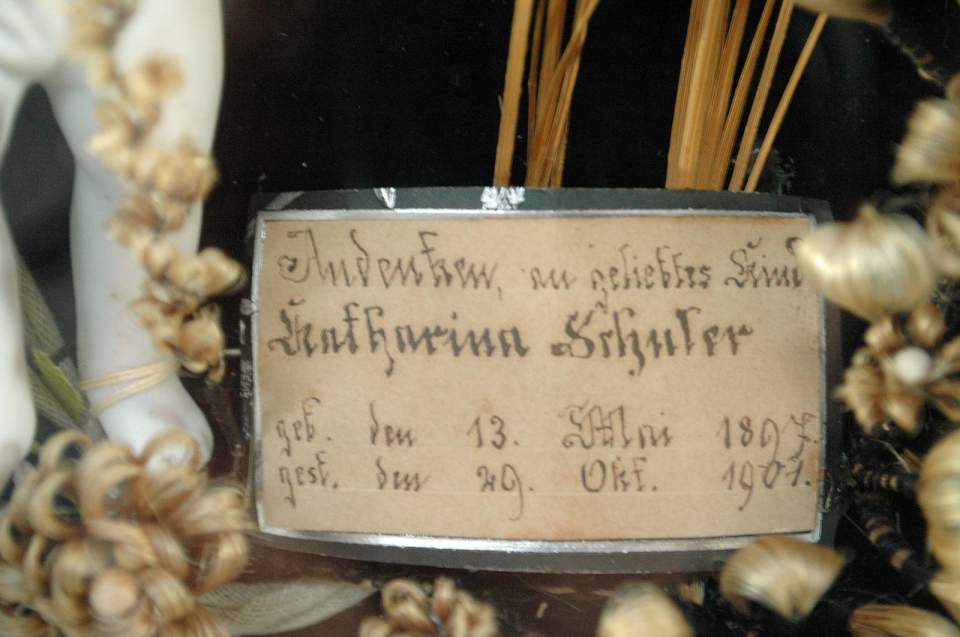 Andenken, an geliebtes Kind
Katharina Schuler
geb. den 13. Mai 1897.
gest. den 29. Okt. 1907.